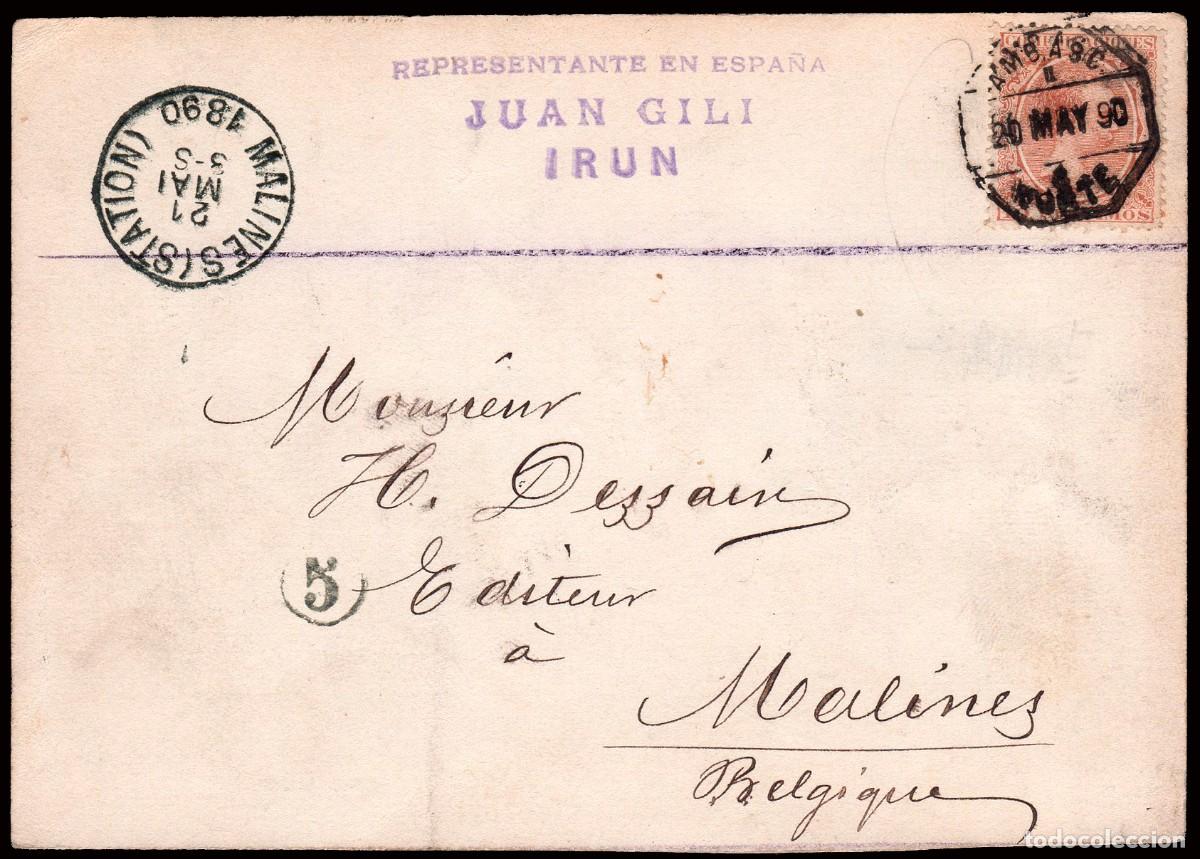 REPRESENTANTE EN ESPAÑA
JUAN GILI
IRUN
AMB. ASC.
20 MAY 90
NORTE
MALINES (STATION)
21
MAI
3-S
1890
Monsieur
H. Dessain
5
Editeur
à
Malines
Belgique
todocoleccion